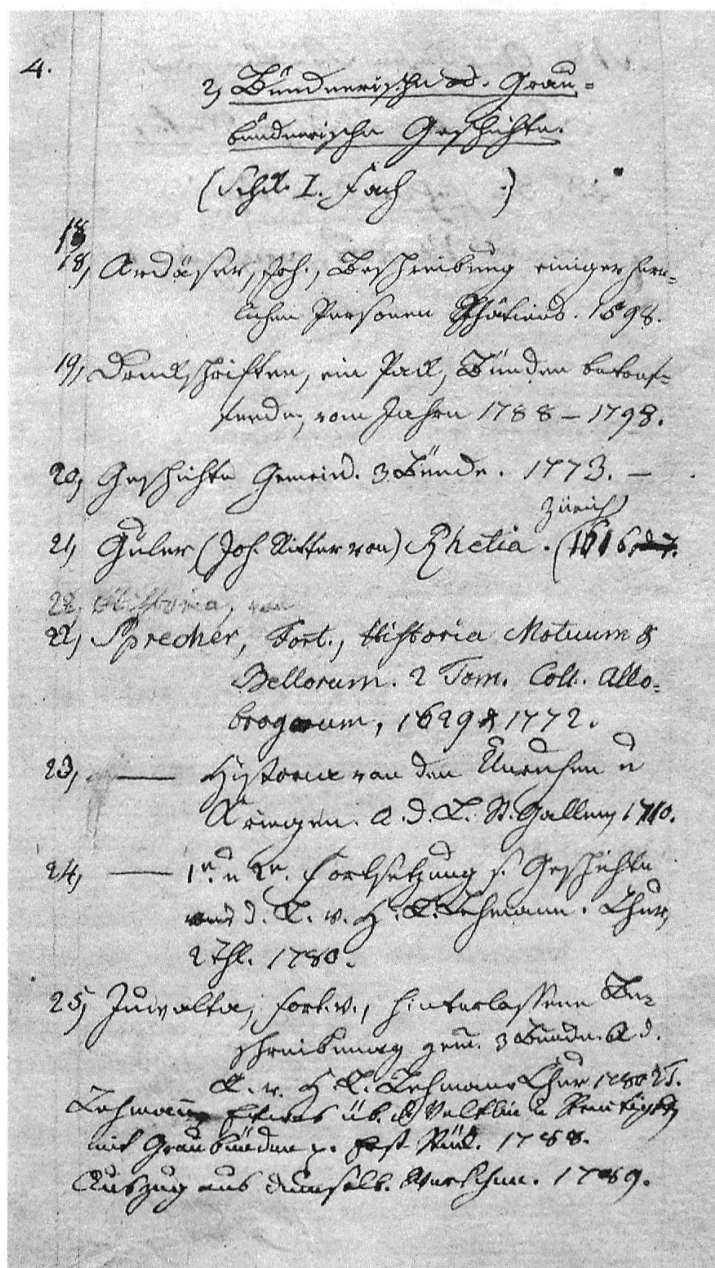 4.
2, Bündnerische od. Grau-
bündnerische Geschichte.
(Schk. I. Fach .)
18
18, Ardüser, Joh., Beschreibung einiger herr-
lichen Personen Rhätiens. 1598.
19, Druckschriften, ein Pack, Bünden betref-
fende, vom Jahre 1788 – 1798.
20, Geschichte Gemeind. 3 Bünde. 1773. –
Zürich
21, Guler, (Joh. Ritter von) Rhetia. (1616
22. Historia, von
22, Sprecher, Fort., Historia Motuum &
Bellorum. 2 Tom. Coll. Allo-
brogorum, 1629 & 1772.
23, —— Historie von den Unruhen u
Kriegen. A. d. L. St. Gallen, 1710.
24, —— 1e. u 2e. Fortsetzung s. Geschichte
aus d. L. v. H. L. Lehmann. Chur,
2 Thl. 1780.
25, Juvalta, Fort. v., hinterlassene Be-
schreibung gem. 3 Bünde. A d.
L. v. H L. Lehmann Chur 1780 2 T.
Lehmann Etwas üb. d Veltlin u Streitigkt
mit Graubünden p. Erst Stück. 1788.
Auszug aus demselb. 1789.